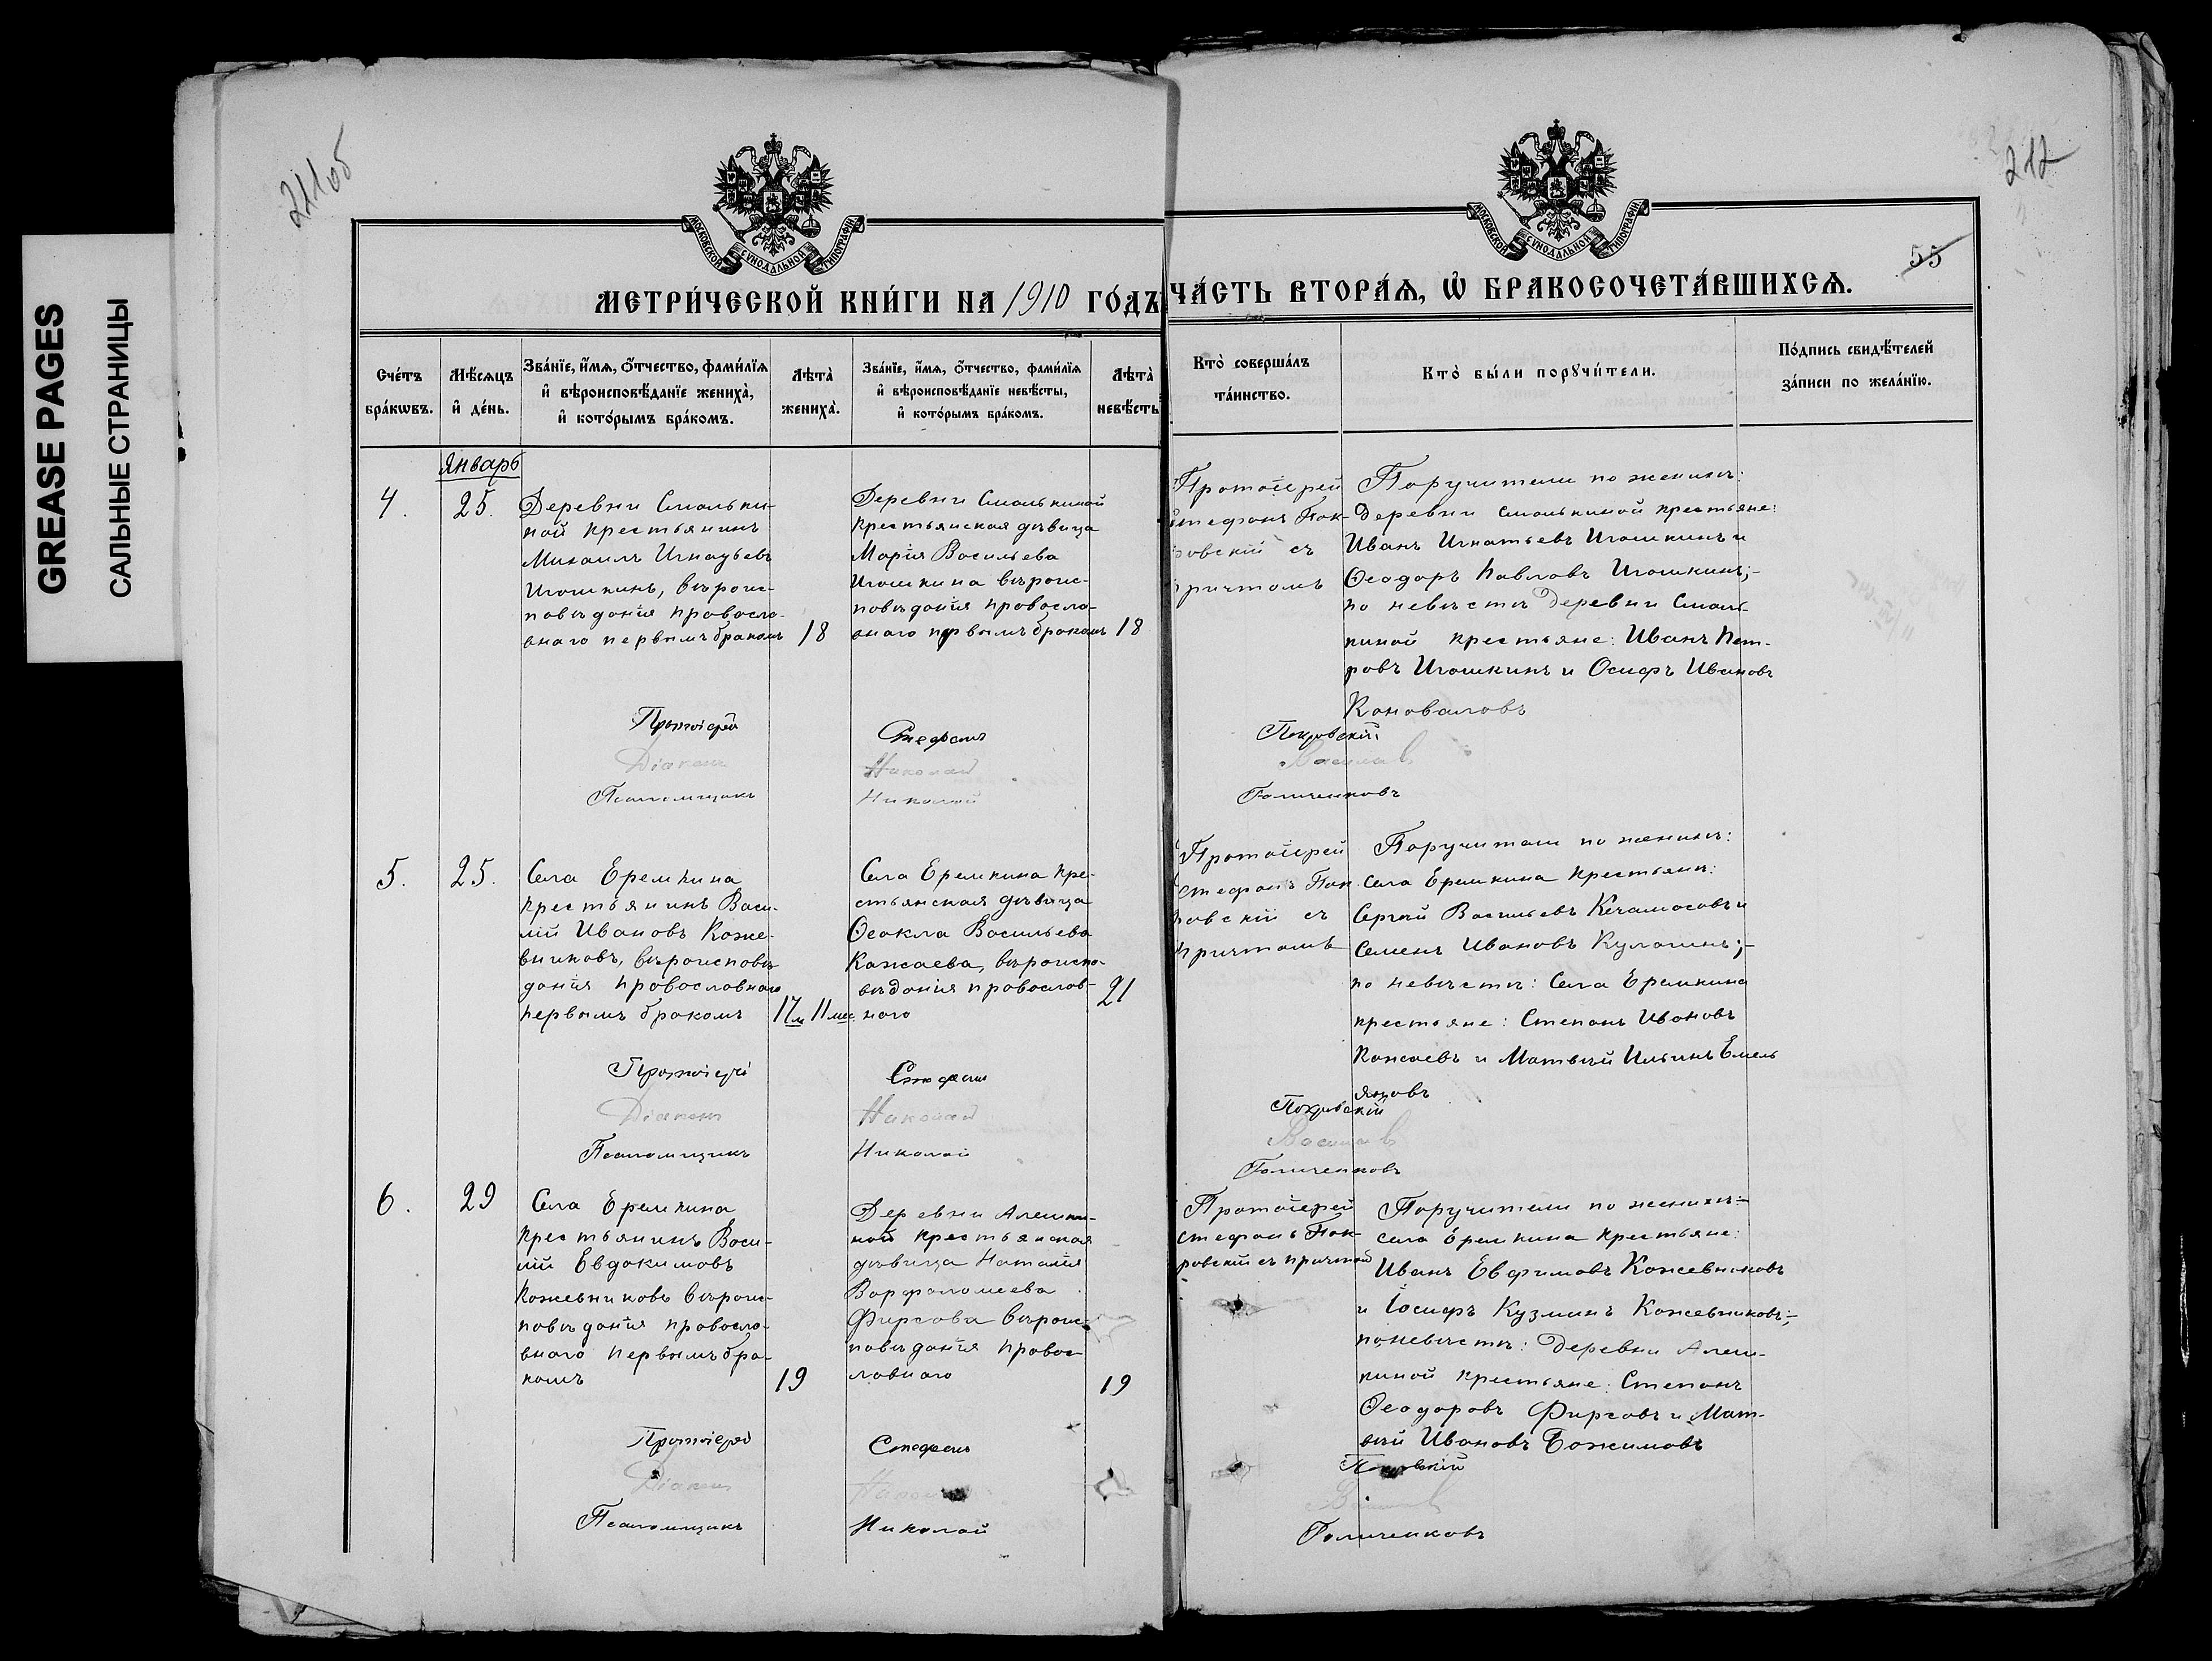 GREASE PAGES
САЛЬНЫЕ СТРАНИЦЫ
211об
212
55
МОСКОВСКОЙ СѴНОДАЛЬНОЙ ТИПОГРАФІИ
МОСКОВСКОЙ СѴНОДАЛЬНОЙ ТИПОГРАФІИ
МЕТРИ́ЧЕСКОЙ КНИ́ГИ НА 1910 ГО́ДЪ
ЧА́СТЬ ВТОРА́Ѧ, Ѡ҆ БРАКОСОЧЕТА́ВШИХСѦ.
Сче́тъ
бра́кѡвъ.
Мѣ́сѧцъ
и҆ де́нь.
Зва́нїе, и҆́мѧ, ѻ҆́тчество, фами́лїѧ
и҆ вѣроисповѣ́данїе жениха̀,
и҆ кото́рымъ бра́комъ.
Лѣта̀
жениха̀.
Зва́нїе, и҆́мѧ, ѻ҆́тчество, фами́лїѧ
и҆ вѣроисповѣ́данїе невѣ́сты,
и҆ кото́рымъ бра́комъ.
Лѣта̀
невѣ́сты
Кто̀ соверша́лъ
та́инство.
Кто̀ бы́ли порꙋчи́тели.
По́дпись свидѣ́телей
за́писи по жела́нїю.
Январь
4.
25.
Деревни Смольки-
ной крестьянинъ
Михаилъ Игнатьевъ
Игошкинъ, вѣроис-
повѣданія правосла-
внаго первымъ бракомъ
18
Деревни Смолькиной
крестьянская дѣвица
Марія Васильева
Игошкина вѣроис-
повѣданія правосла-
внаго первымъ бракомъ
18
Протоіерей
Стефанъ Пок-
ровскій съ
причтомъ
Поручители по женихѣ:
деревни Смолькиной крестьяне:
Иванъ Игнатьевъ Игошкинъ и
Ѳеодоръ Павловъ Игошкинъ;-
по невѣстѣ деревни Смоль-
киной крестьяне: Иванъ Пет-
ровъ Игошкинъ и Осифъ Ивановъ
Коноваловъ
Протоіерей Стефанъ Покровскій
Діаконъ Николай
Псаломщикъ Николай Голиченковъ
5.
25.
Села Еремкина
крестьянинъ Васи-
лій Ивановъ Коже-
вниковъ, вѣроисповѣ-
данія православнаго
первымъ бракомъ
17 л. 11 мес.
Села Еремкина кре-
стьянская дѣвица
Ѳеокла Васильева
Кажаева, вѣроиспо-
вѣданія православ-
наго
21
Протоіерей
Стефанъ Пок-
ровскій съ
причтомъ
Поручители по женихѣ:
села Еремкина крестьяне:
Сергѣй Васильевъ и
Семенъ Ивановъ Кулагинъ;-
по невѣстѣ: села Еремкина
крестьяне: Степанъ Ивановъ
Кажаевъ и Матвѣй Ильинъ Емель
яновъ
Протоіерей Стефанъ Покровскій
Діаконъ Николай
Псаломщикъ Николай Голиченковъ
6.
29
Села Еремкина
крестьянинъ Васи-
лій Евдокимовъ
Кожевниковъ вѣроис-
повѣданія правосла-
внаго первымъ бра-
комъ
19
Деревни Алешки-
ной крестьянская
дѣвица Наталія
Варфоломеева
Фирсова вѣроис-
повѣданія правос-
лавнаго
19
Протоіерей
Стефанъ Пок-
ровскій съ причтомъ
Поручители по женихѣ:-
села Еремкина крестьяне:
Иванъ Евфимовъ Кожевниковъ
и Іосифъ Кузминъ Кожевниковъ;-
по невѣстѣ: деревни Алеш-
киной крестьяне: Степанъ
Ѳеодоровъ Фирсовъ и Мат-
вѣй Ивановъ
Протоіерей Стефанъ Покровскій
Діаконъ
Псаломщикъ Николай Голиченковъ